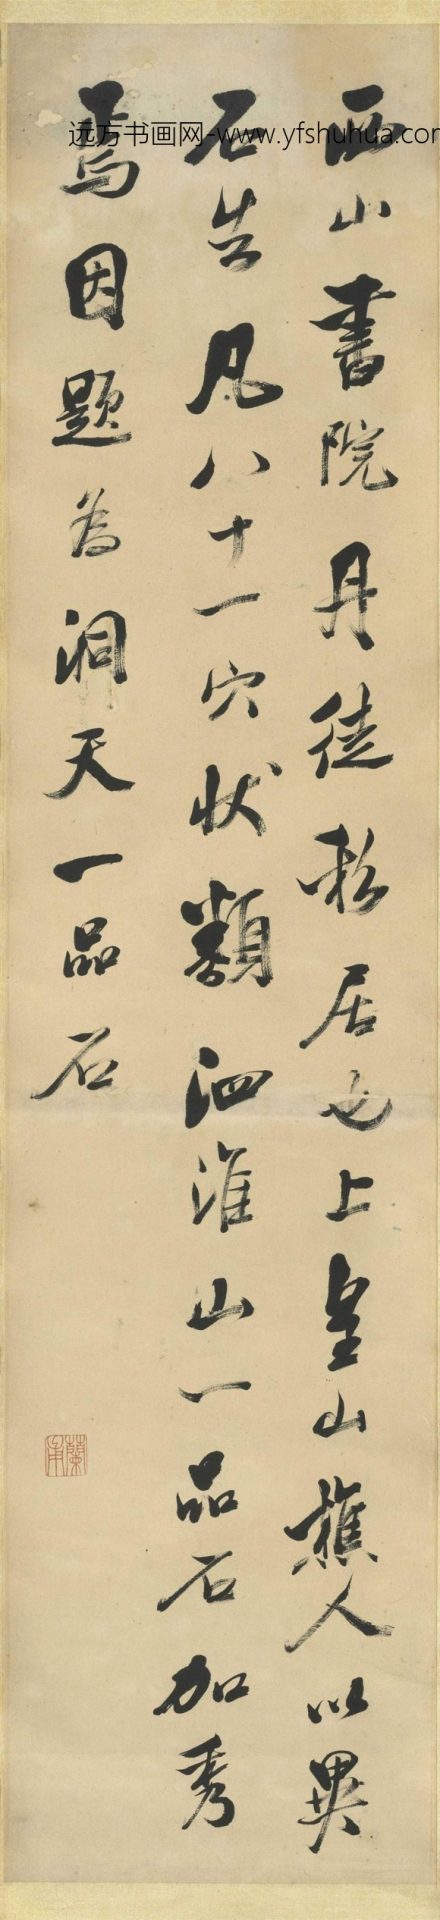 西山書院丹徒私居也上皇山樵人以異
石告凡八十一穴状類泗淮山一品石加秀
焉因題為洞天一品石
远方书画网-www.yfshuhua.com